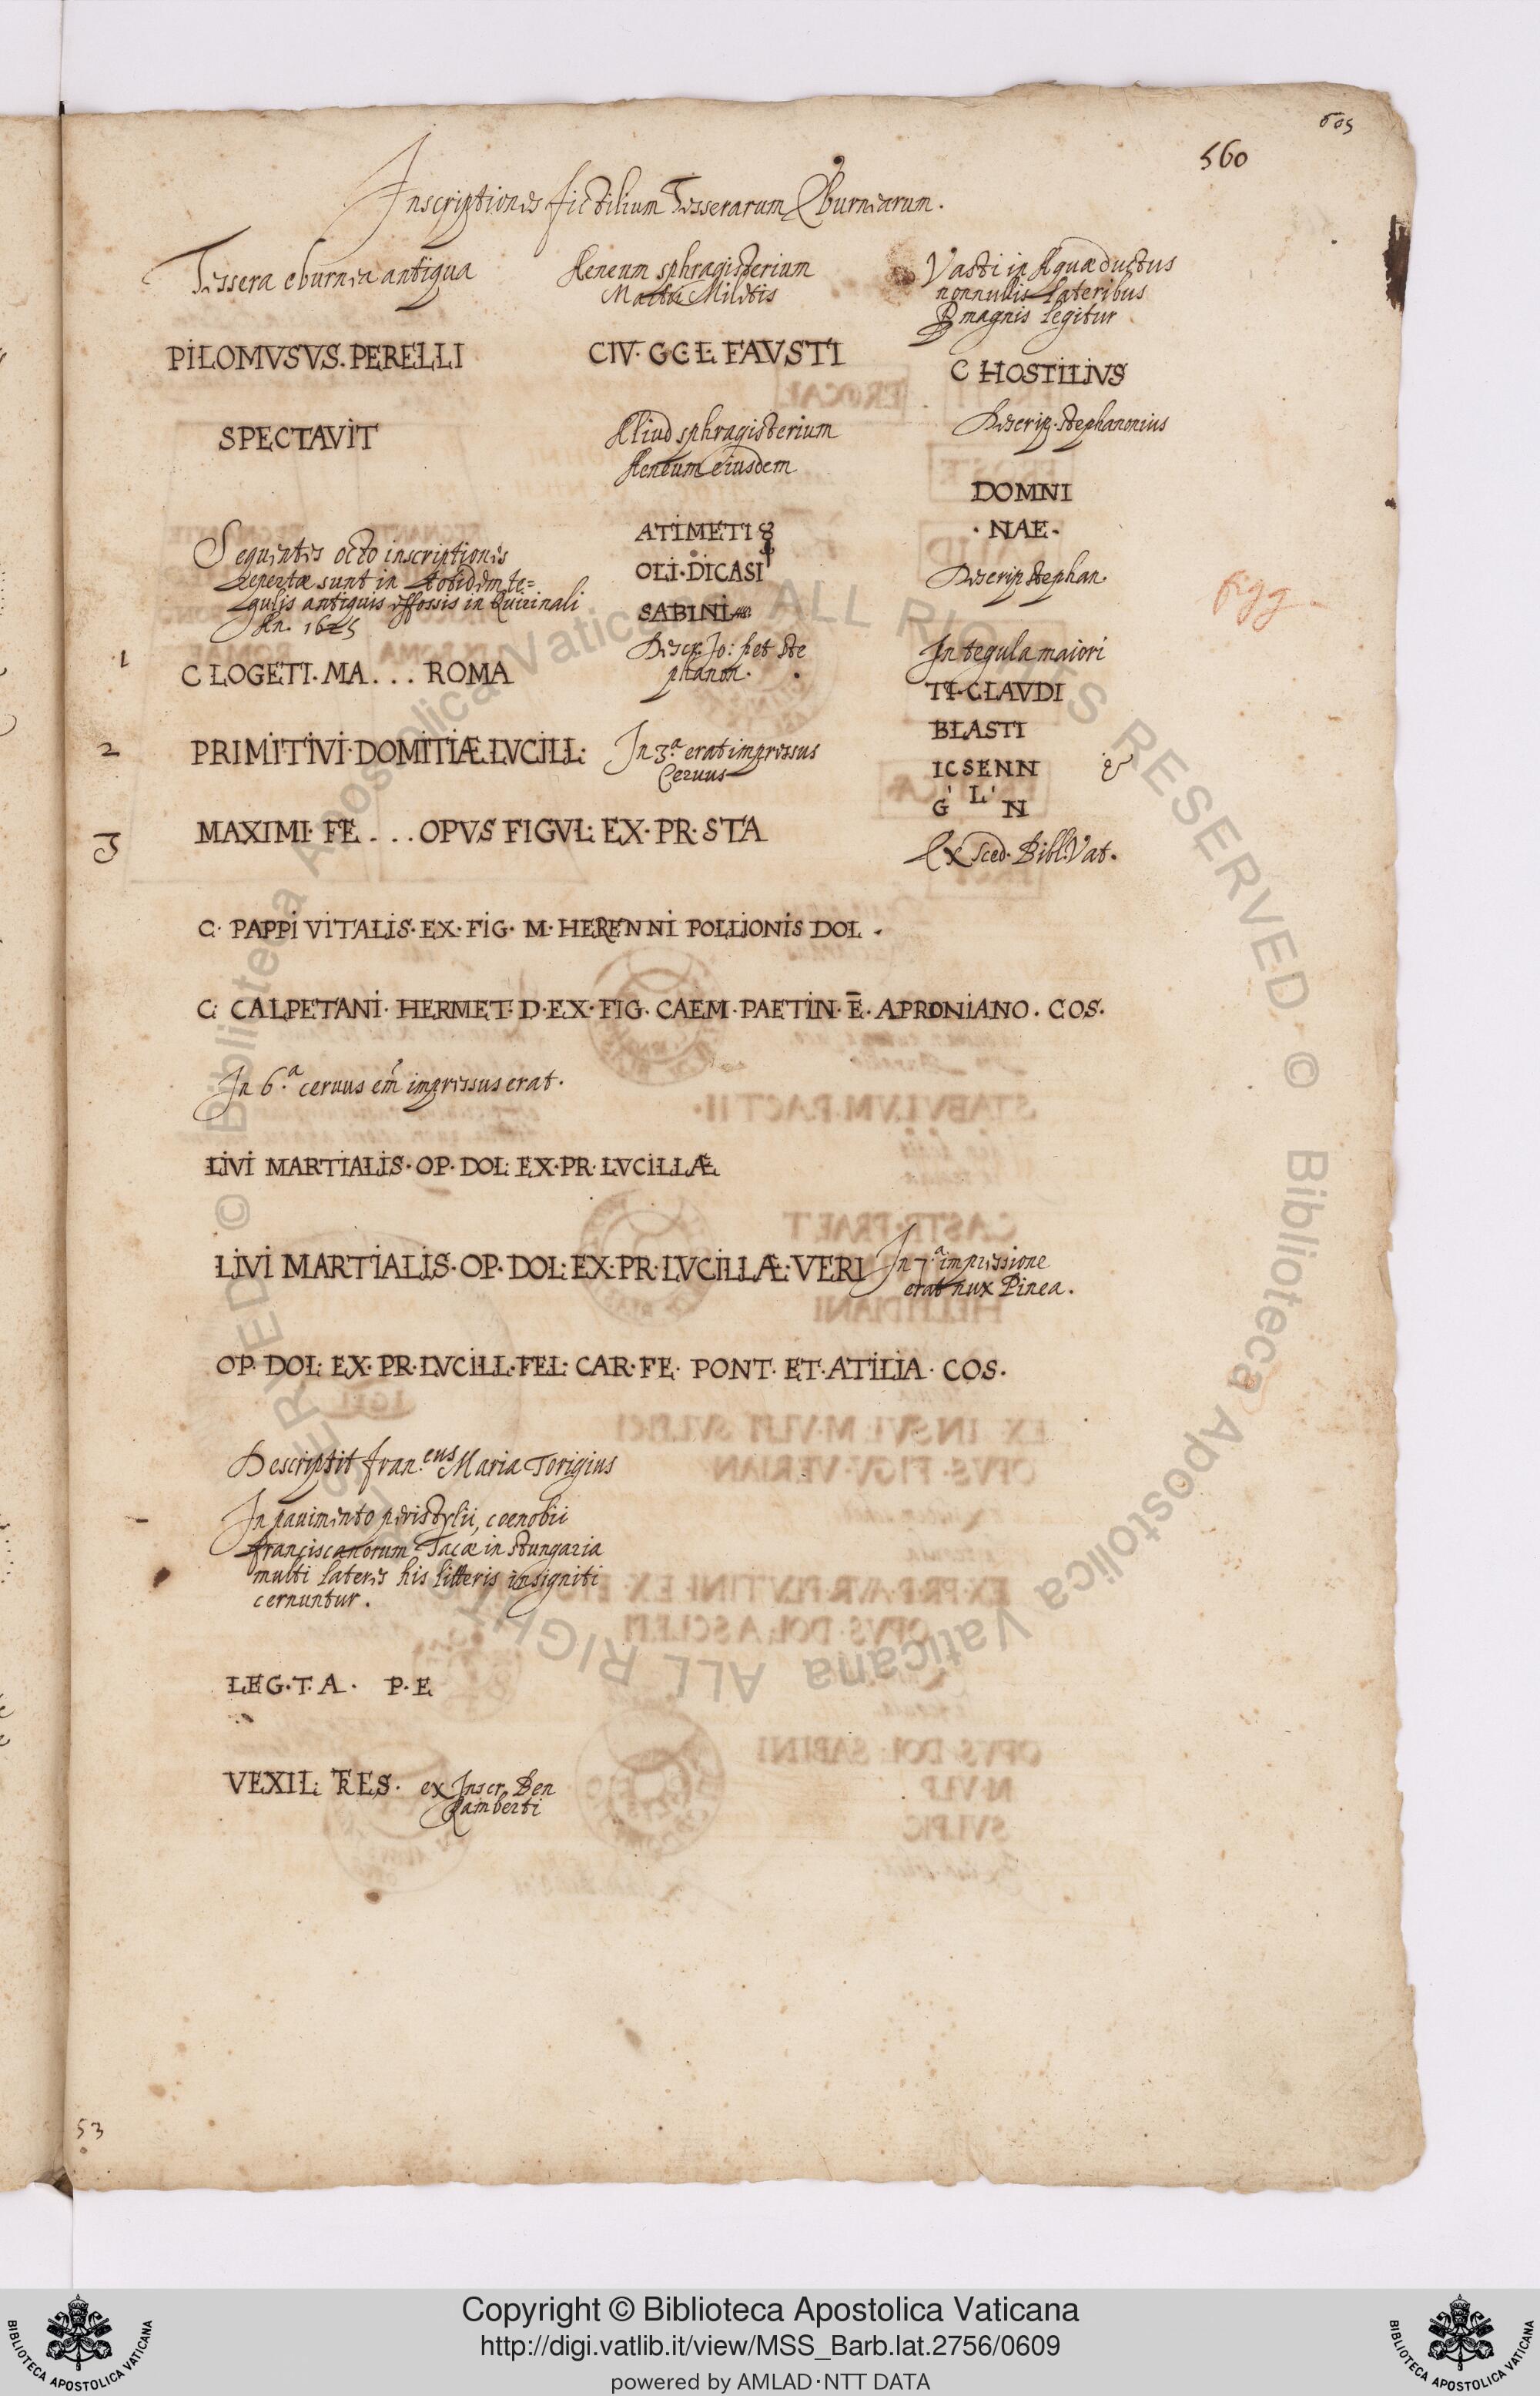 605
560
Inscriptiones fictilium Tesserarum Eburnearum.
Tessera eburnea antiqua
PILOMVSVS. PERELLI
SPECTAVIT
Sequentes octo inscriptiones
repertæ sunt in totidem te=
gulis antiquis effossis in Quirinali
An. 1625
1 C LOGETI. MA . . . ROMA
2 PRIMITIVI· DOMITIÆ LVCILL:
In 3.ª erat impressus
Ceruus
3 MAXIMI· FE . . . OPVS FIGVL: EX· PR· STA
Aeneum sphragisterium
Militis
CIV· GCL FAVSTI
Aliud sphragisterium
Aeneum eiusdem
ATIMETI
OLI· DICASI
SABINI
Descr. Jo: Pet Ste
phanon·
Vasti in Aquæductus
nonnullis lateribus
magnis legitur
C HOSTILIVS
Descrip· Stephanonius
DOMNI
· NAE·
Descrip Stephan·
figg.
In tegula maiori
TI· CLAVDI
BLASTI
ICSENN
G' L' N
Ex Sced· Bibl: Vat·
C· PAPPI VITALIS· EX· FIG· M· HERENNI POLLIONIS DOL ·
C: CALPETANI· HERMET· D· EX· FIG· CAEM· PAETIN· Ē· APRONIANO · COS·
In 6.ª ceruus em̃ impressus erat·
LIVI MARTIALIS· OP· DOL: EX· PR· LVCILLÆ
LIVI MARTIALIS· OP· DOL: EX· PR· LVCILLÆ· VERI In 7.ª impressione
erat nux Pinea.
OP· DOL: EX· PR· LVCILL· FEL: CAR· FE· PONT· ET· ATILIA · COS·
Descriptit fran.cus Maria Torigius
In pauimento peristylii, coenobii
franciscanorum Tacæ in Hungaria
multi lateres his litteris insigniti
cernuntur.
LEG· T· A· P· E
VEXIL: RES· ex Inscr. Ben
Ramberti
53
© Biblioteca Apostolica Vaticana ALL RIGHTS RESERVED © Biblioteca Apostolica Vaticana ALL RIGHTS RESERVED
Copyright © Biblioteca Apostolica Vaticana
http://digi.vatlib.it/view/MSS_Barb.lat.2756/0609
powered by AMLAD·NTT DATA
BIBLIOTECA APOSTOLICA VATICANA
BIBLIOTECA APOSTOLICA VATICANA